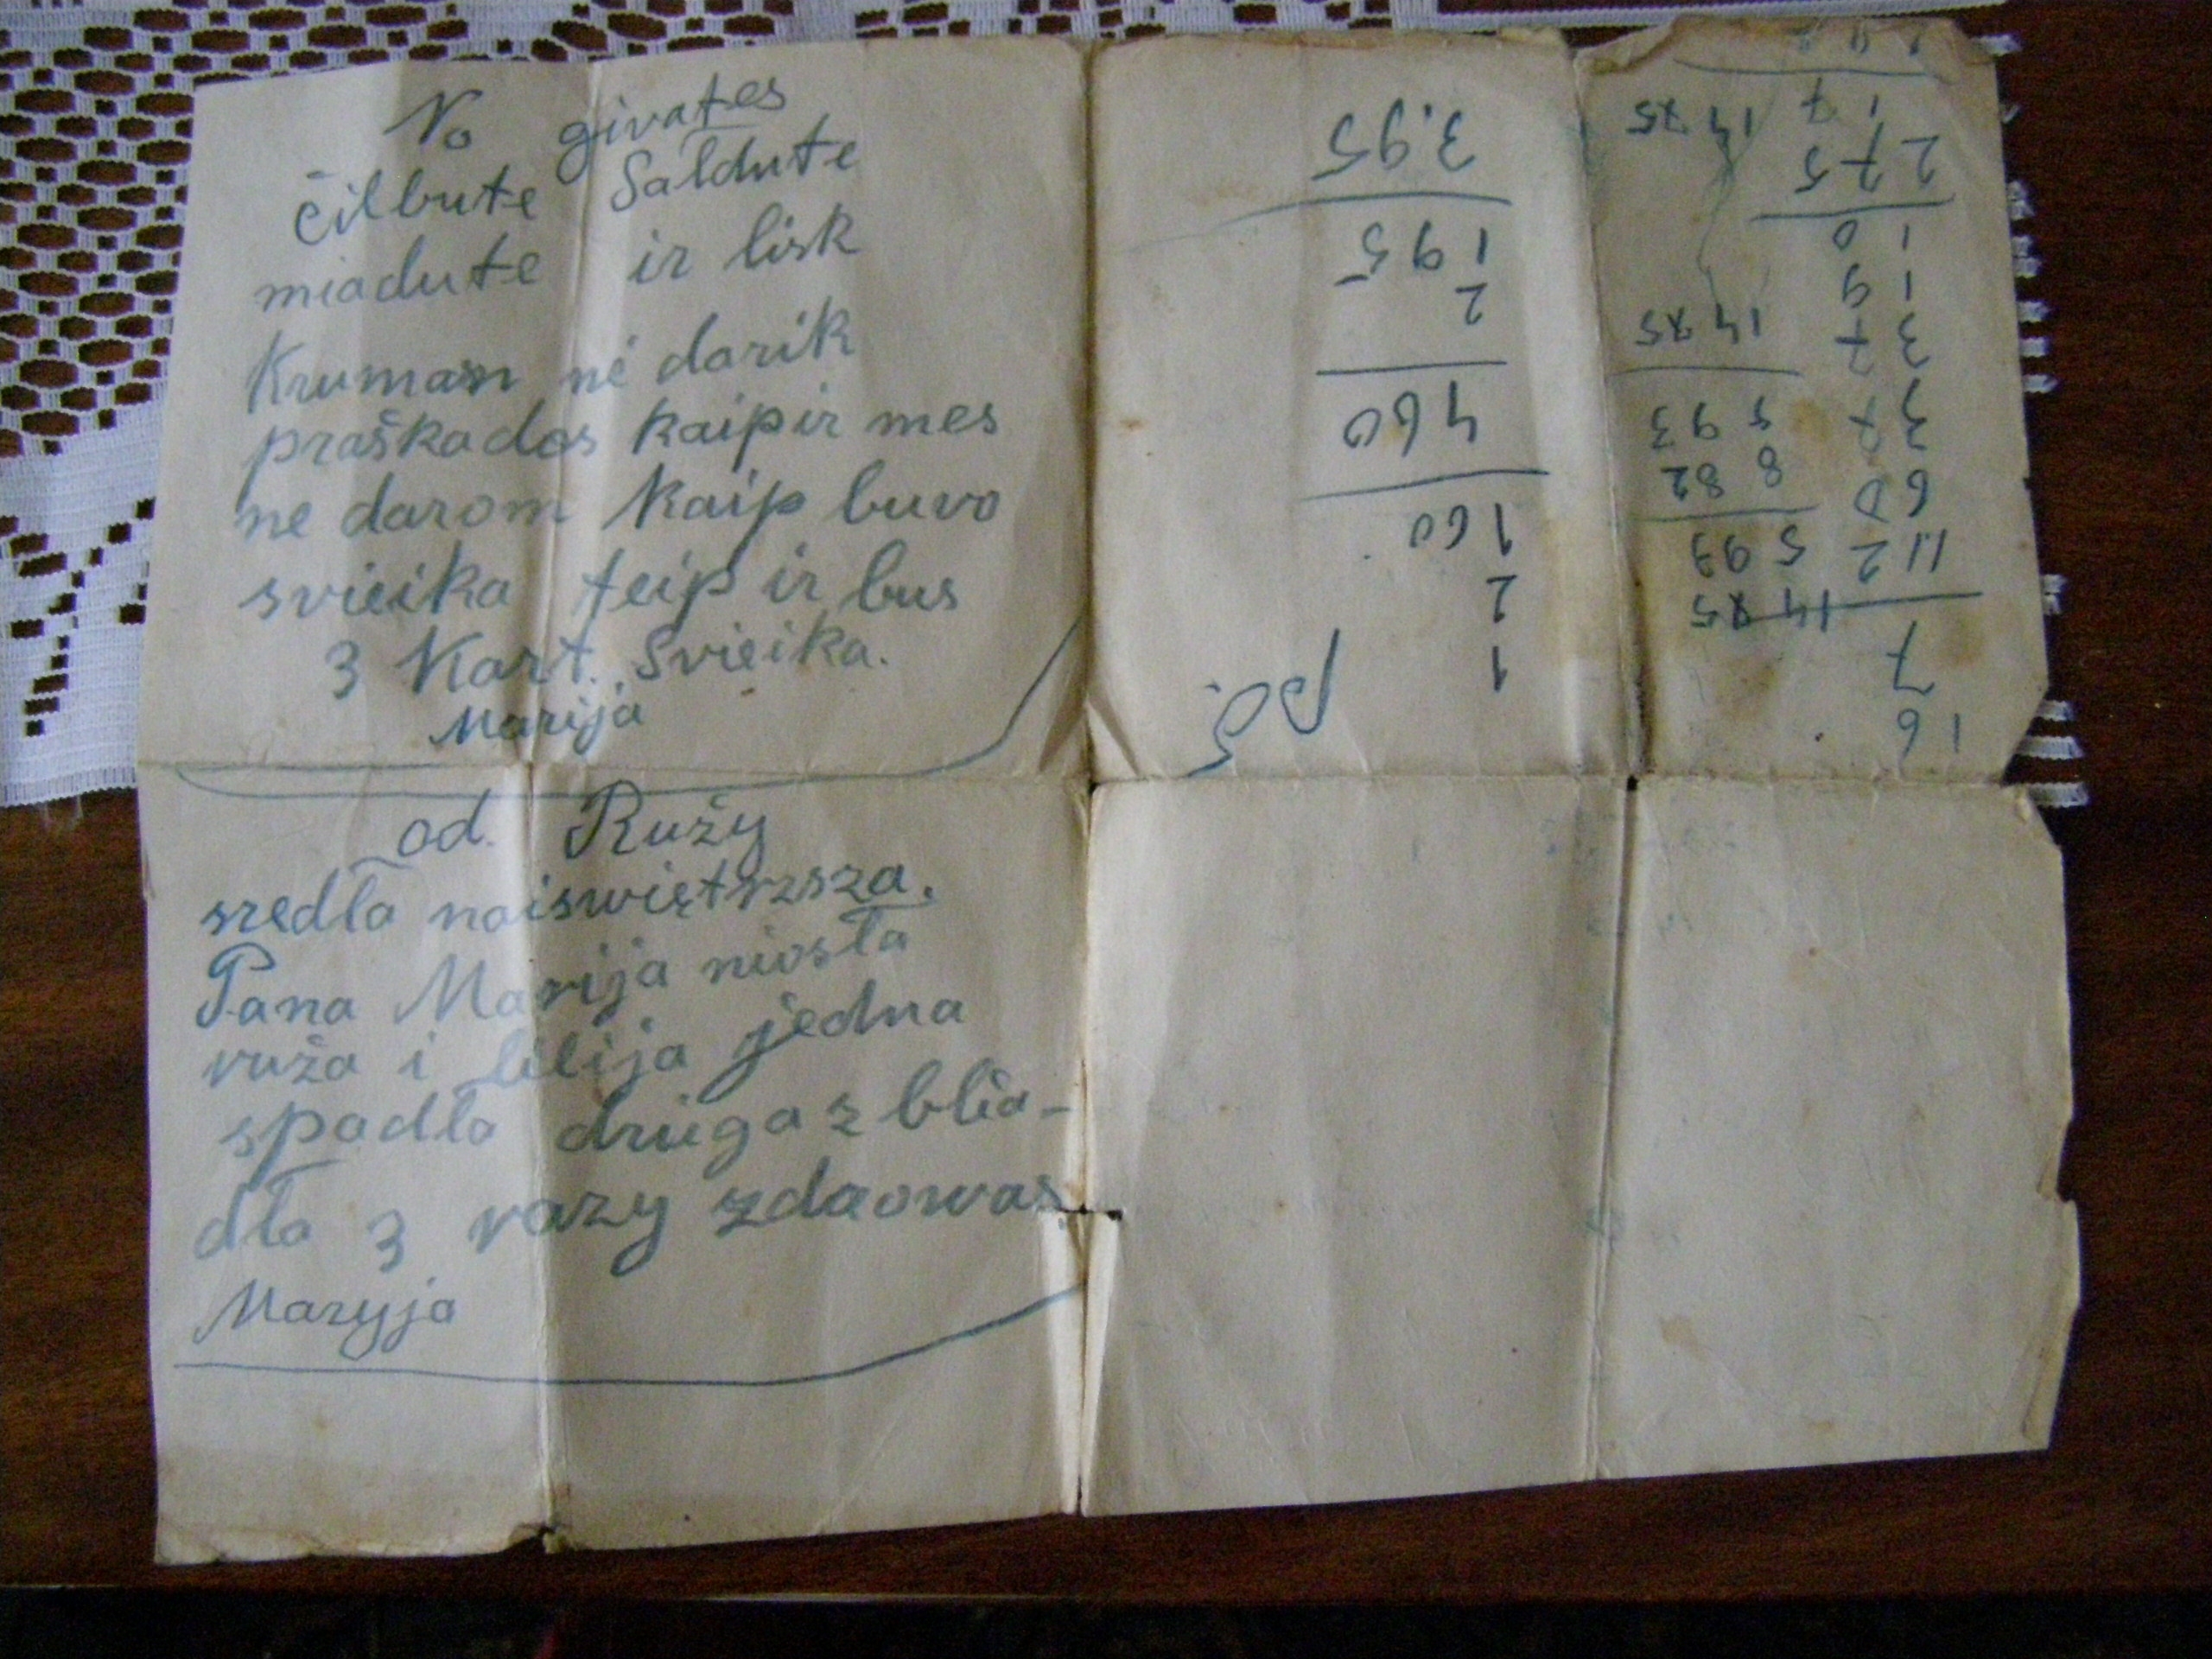 No givates
čilbute Saldute
miadute ir lisk
Kruman ne darik
praškados kaip ir mes
ne darom kaip buvo
svieika teip ir bus
3 Kart. Svieika.
Marija
od. Ružy
szedła naiswiętrzsza.
Pana Marija niosła
ruža i lilija jedna
spadła druga z blia-
dła 3 razy zdaowas
Maryja
16
7
11.2
60
37
19
10
2 75
17
14 75
5 93
8 82
14 75
14 75
po.
1
2
1 60
4 60
2
1 95
3.95